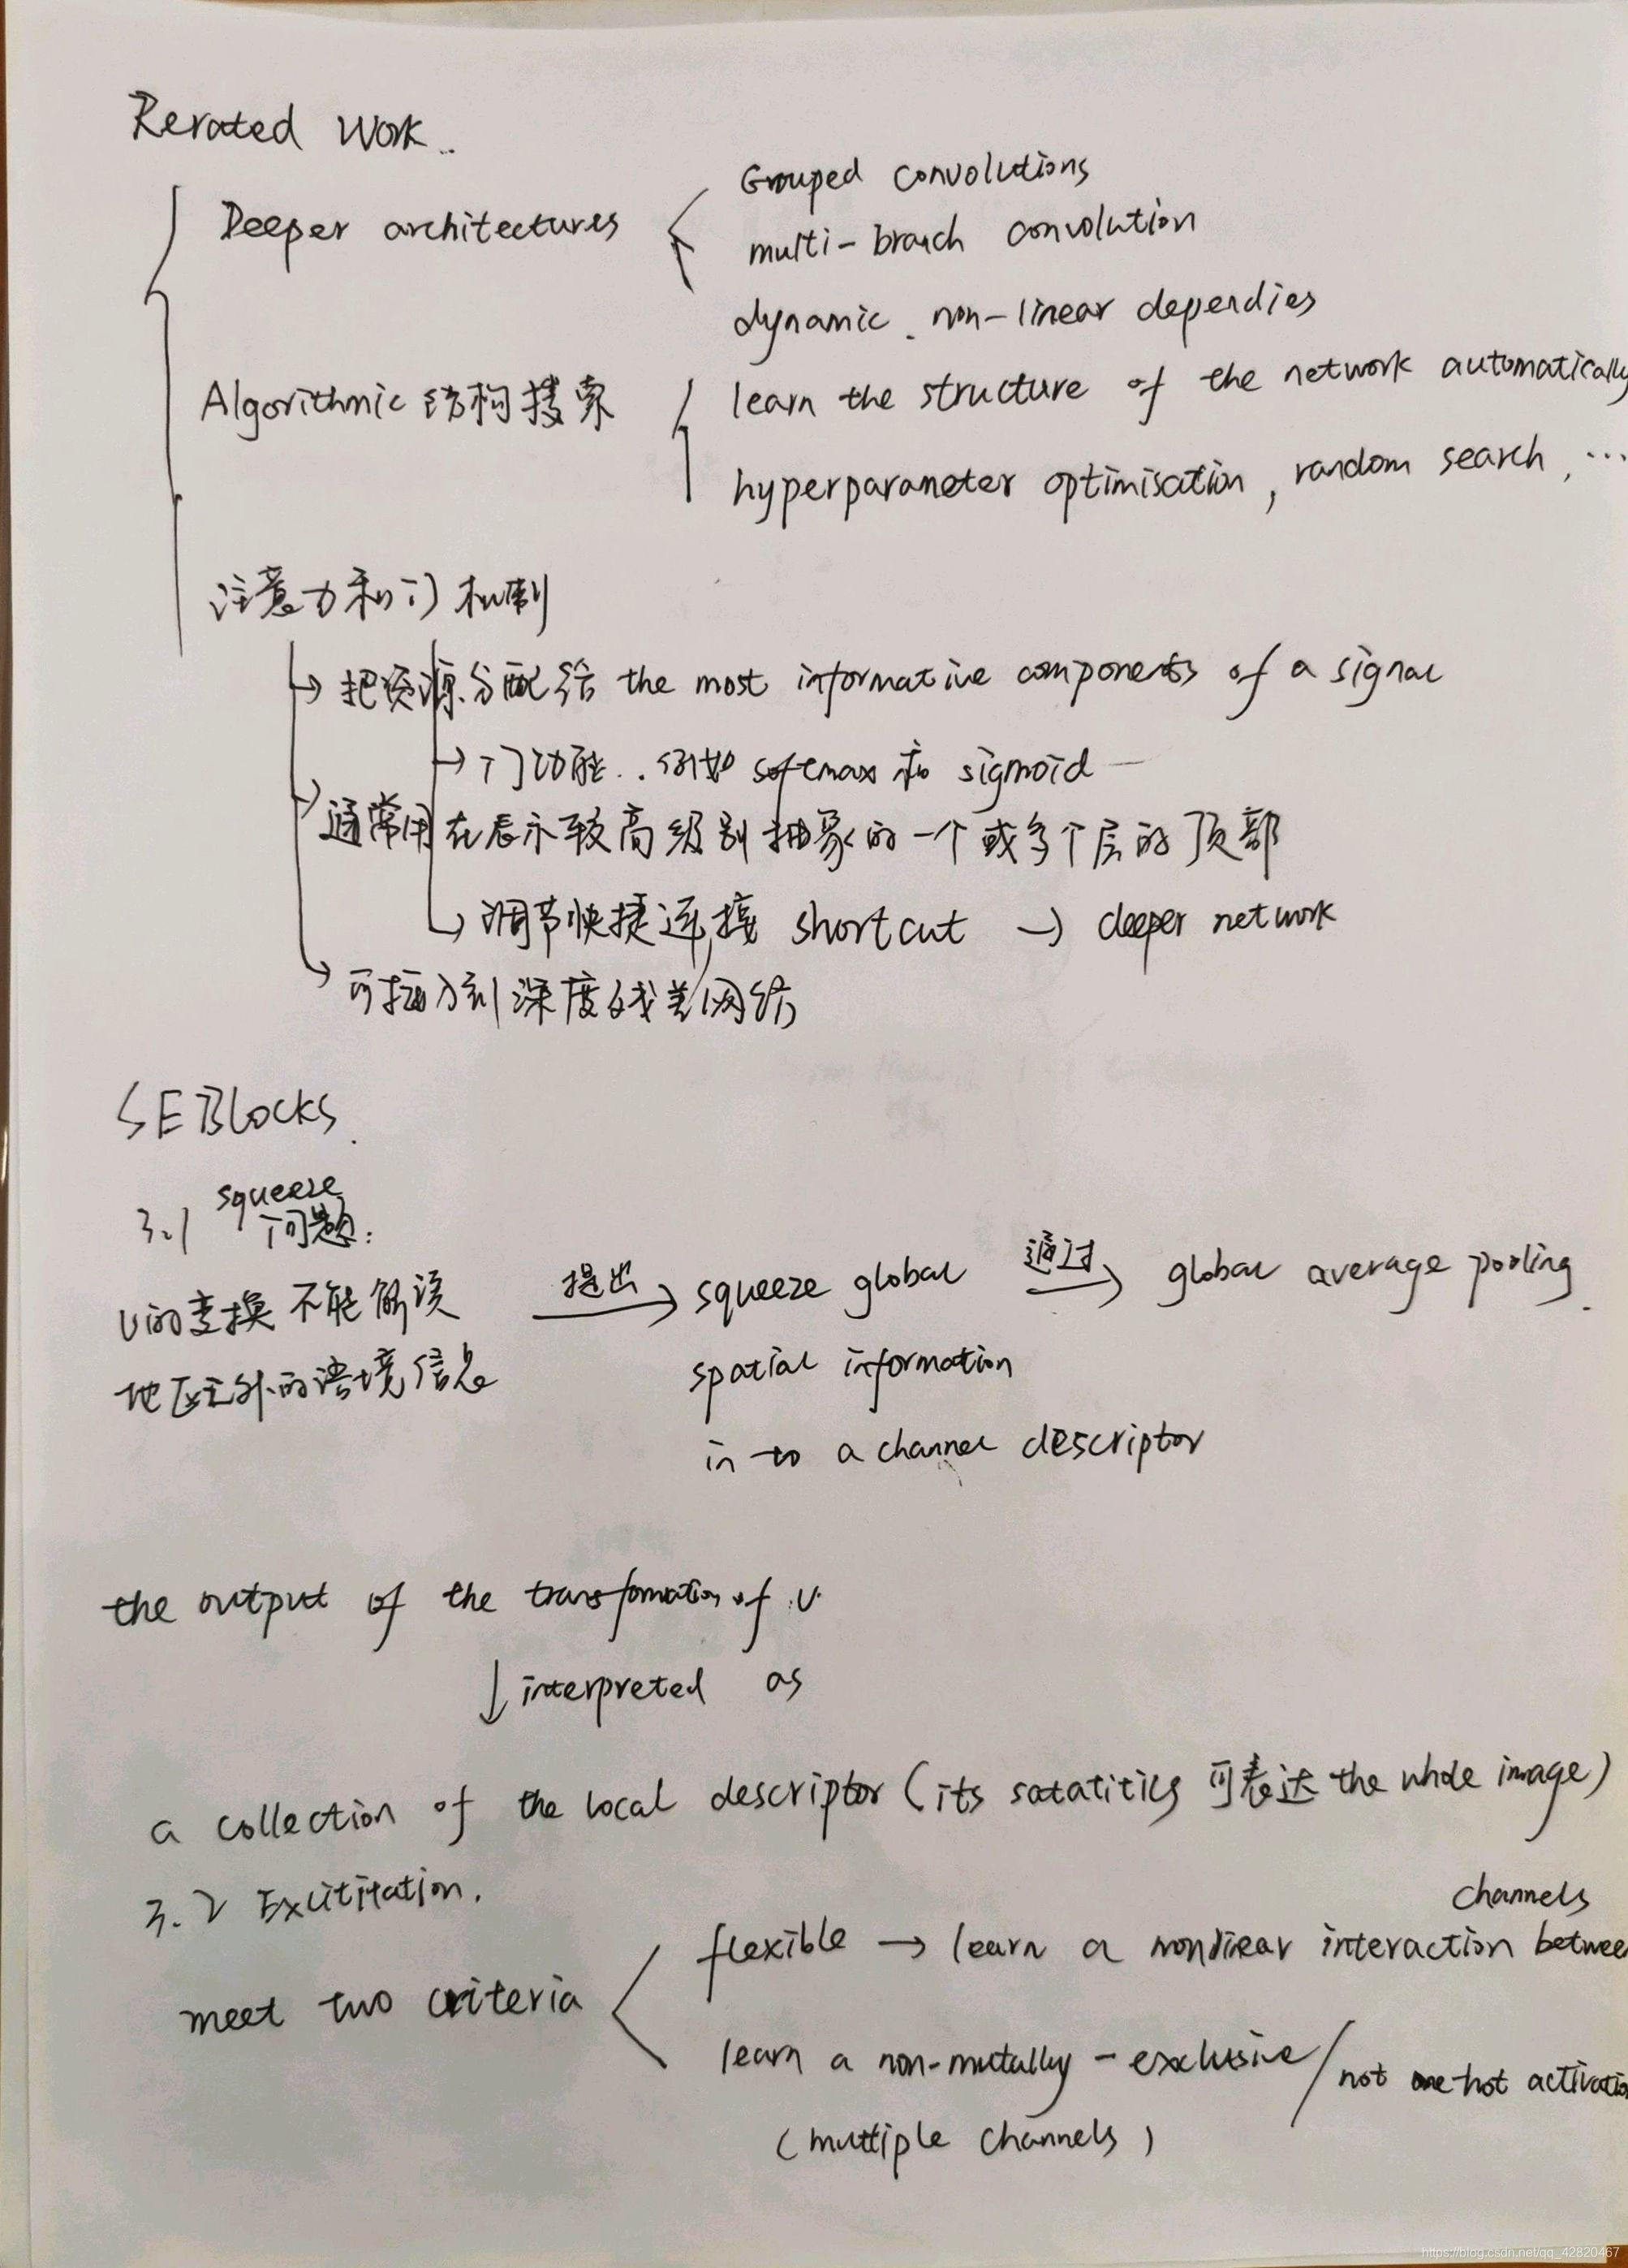 Rerated Work..
Deeper architectures
Grouped convolutions
multi-branch convolution
dynamic. non-linear dependies
Algorithmic 结构搜索
learn the structure of the network automatically
hyperparameter optimisation, random search, ...
注意力和门机制
把资源分配给 the most informative components of a signal
门功能..例如 softmax 和 sigmoid
通常用在表示较高级别抽象的一个或多个层的顶部
调节快捷连接 shortcut → deeper network
可插入到深度残差网络
SE Blocks.
3.1 squeeze
问题:
U的变换不能解读
地区之外的语境信息
提出 → squeeze global
spatial information
in to a channel descriptor
通过 → global average pooling.
the output of the transformation of U.
↓ interpreted as
a collection of the local descriptor (its satatitics 可表达 the whole image)
3.2 Excititation.
meet two criteria
flexible → learn a nonlinear interaction between
channels
learn a non-mutally-exclusive / not one-hot activatio
(multiple channels)
https://blog.csdn.net/qq_42820467